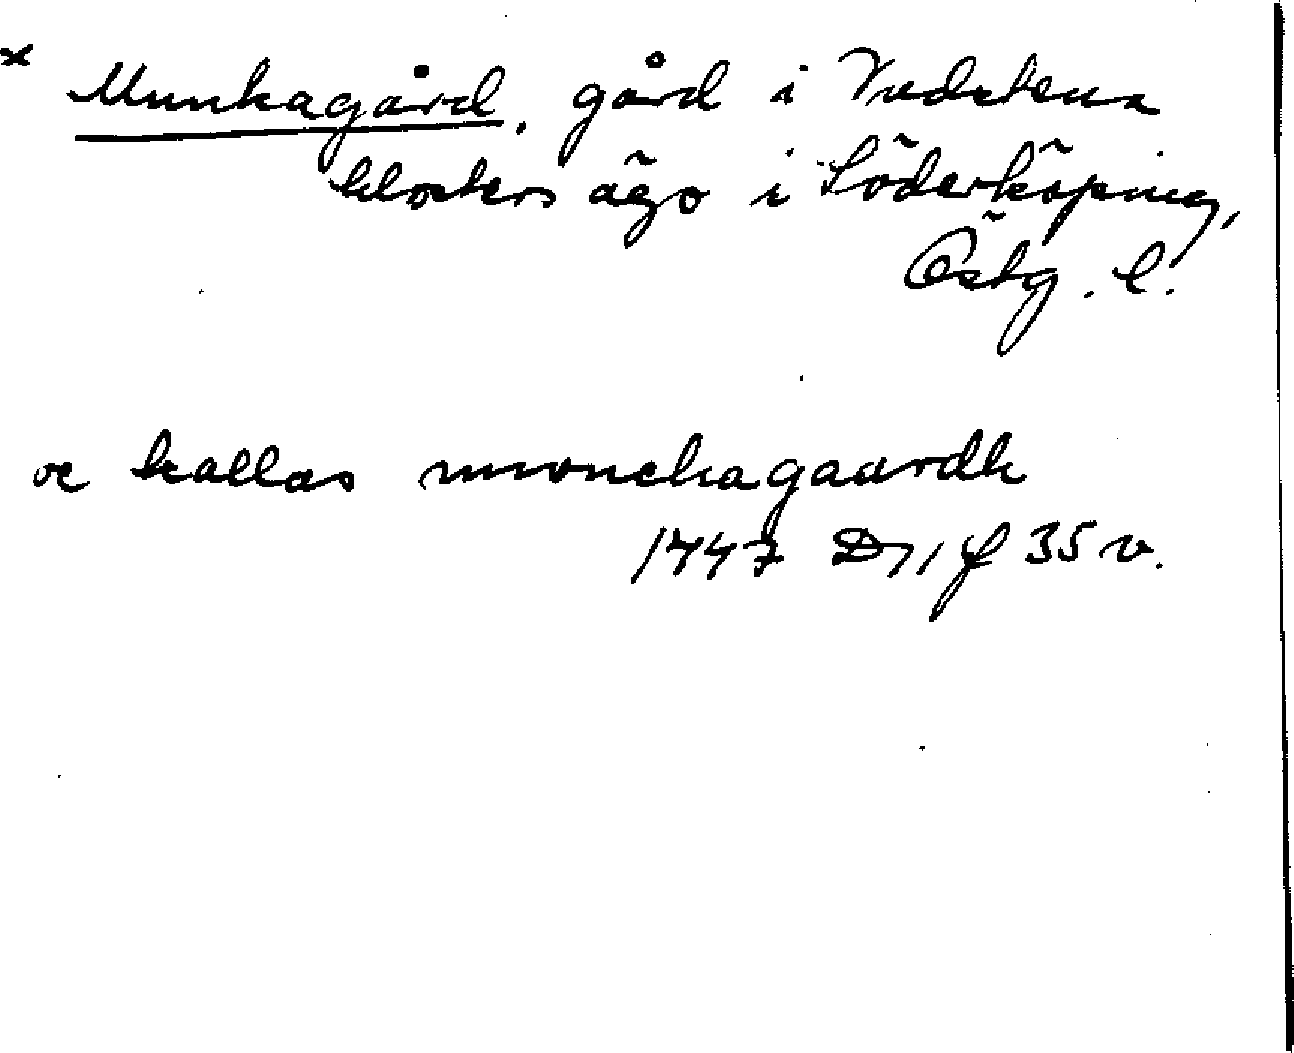 × Munkagård, gård i Vadstena
klosters ägo i Söderköping,
Östg. l.
oc kallas mwnckagaardh
1447 D11 f 35 v.